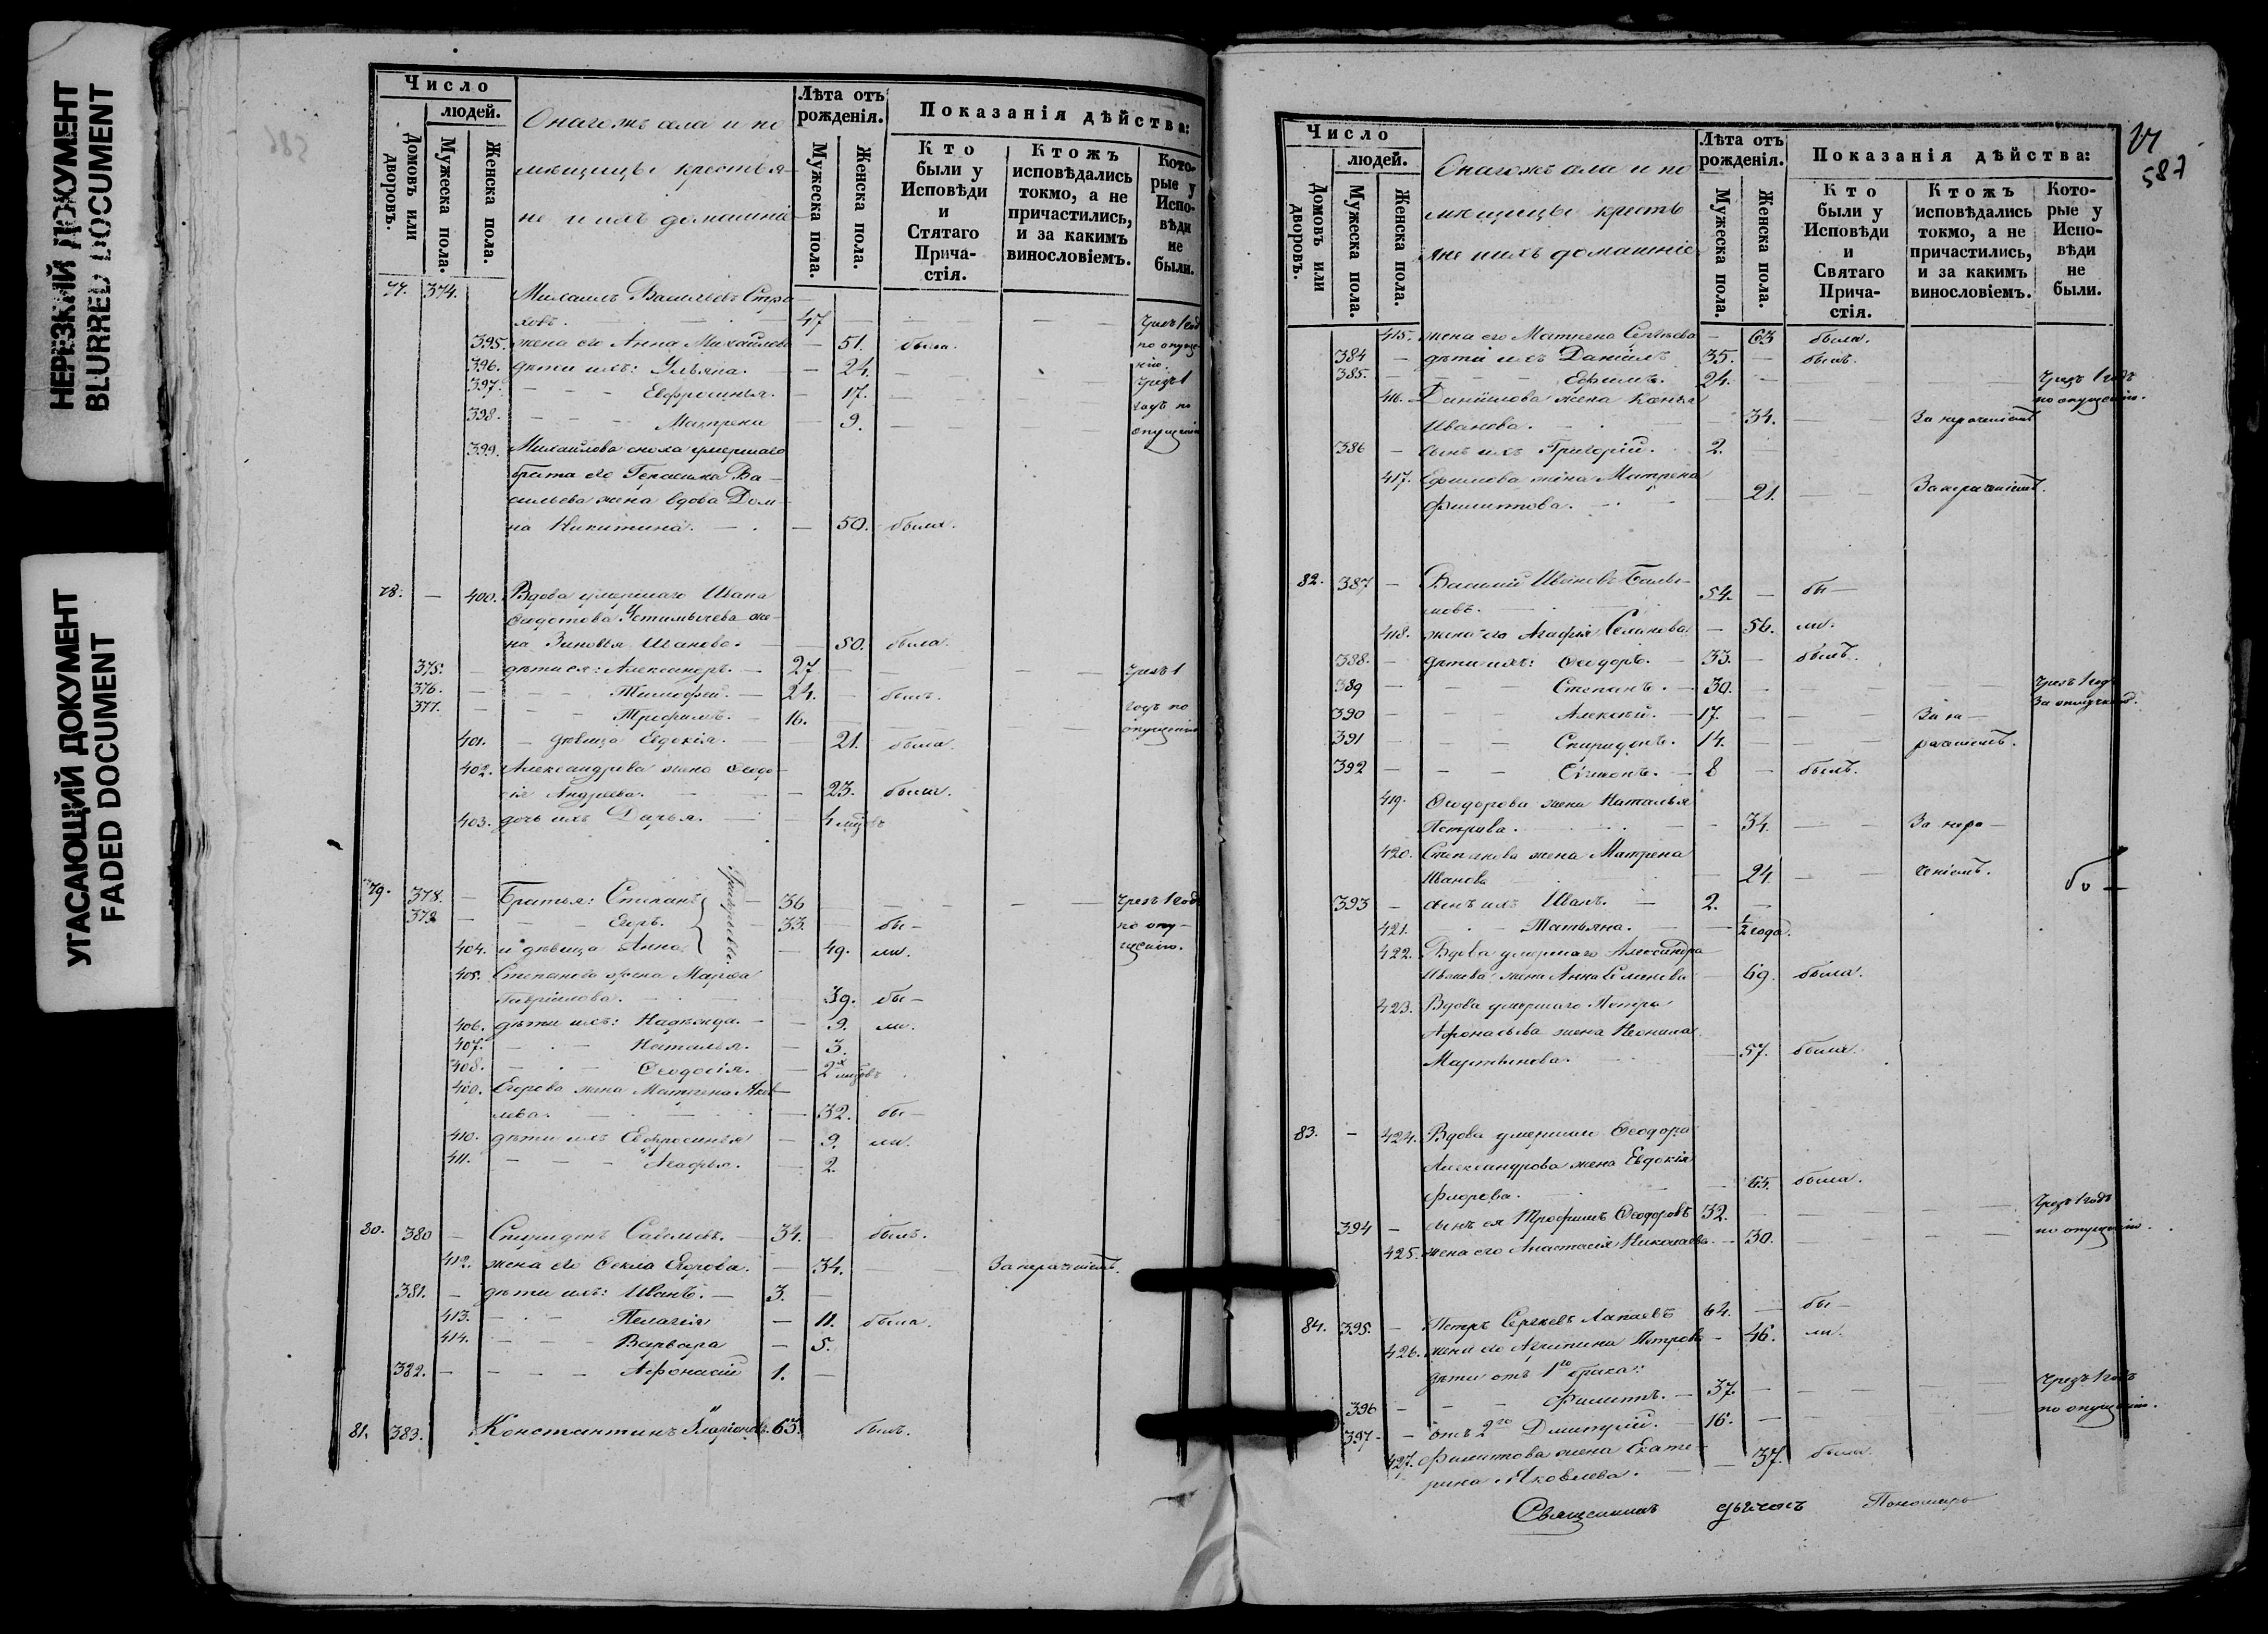 НЕРЕЗКИЙ ДОКУМЕНТ
BLURRED DOCUMENT
УГАСАЮЩИЙ ДОКУМЕНТ
FADED DOCUMENT
Число
людей.
Домовъ или дворовъ.
Мужеска пола.
Женска пола.
Онагожъ села и по
мѣщицы крестья-
не и ихъ домашніе
Лѣта отъ рожденія.
Мужеска пола.
Женска пола.
Показанія дѣйства:
Кто были у Исповѣди и Стятаго Прича-стія.
Ктожъ исповѣдались токмо, а не причастились, и за какимъ винословіемъ.
Кото-рые у Испо-вѣди не были.
77. 374. Михаилъ Васильевъ Стра-
ховъ. 47 Чрезъ 1 годъ
395. жена его Анна Михайлова — 51. была. по опуще-
396. дѣти ихъ: Ульяна. — 24. нію.
397. — Евфросинья. — 17. Чрезъ 1
398. — Матрена — 9. годъ по
опущенію
399. Михайлова сноха умершаго
брата его Герасима Ва-
сильева жена вдова Дом-
на Никитина. — 50. была.
78. — 400. Вдова умершаго Ивана
Ѳедотова Устимычева же-
на Зиновья Иванова. — 50. была.
375. дѣти ея: Александръ. — 27 Чрезъ 1
376. — Тимофей. — 24. былъ. годъ по
377. — Трофимъ. — 16. опущенію
401. — дѣвица Евдокія. — 21. была.
402. Александрова жена Ѳеодо-
сія Андреева. — 23. была.
403. дочь ихъ Дарья. — 4 мѣсцовъ
79. 378. — Братья: Степанъ — 36 Чрезъ 1 годъ
379 — Егоръ. — 33. бы- по опу-
404. и дѣвица Анна — 49. ли. щенію.
405. Степанова жена Марѳа
Гавріилова. 39. бы-
406. дѣти ихъ: Надежда. — 9. ли.
407. — Наталья. — 3.
408. — Ѳеодосія. — 2х мѣсцовъ
409. Егорова жена Матрена Яков-
лева. — 32. бы-
410. дѣти ихъ Евфросинья — 9. ли.
411. — Агафья. — 2.
80. 380 — Спиридонъ Савельевъ. — 34. былъ.
412. жена его Ѳекла Егорова. — 34. За нерачніемъ.
381. — дѣти ихъ: Иванъ. — 3.
413. — Пелагія — 11. была.
414. — Варвара — 5.
382. — Афонасій 1.
81. 383. Константинъ Иларіоновъ. 63. былъ.
587
Число
людей.
Домовъ или дворовъ.
Мужеска пола.
Женска пола.
Онагожъ села и по
мѣщицы кресть
яне и ихъ домашніе
Лѣта отъ рожденія.
Мужеска пола.
Женска пола.
Показанія дѣйства:
Кто были у Исповѣди и Святаго Прича-стія.
Ктожъ исповѣдались токмо, а не причастились, и за какимъ винословіемъ.
Кото-рые у Испо-вѣди не были.
415. жена его Матрена Сергѣева — 63 была.
384 — дѣти ихъ Даніилъ 35. — былъ.
385. — Ефимъ. 24. — Чрезъ 1 годъ
по опущенію.
416. Даніилова жена
Иванова. 34. За нераченіемъ
386 — сынъ ихъ Григорій. 2.
417. Ефимова жена Матрена
Филиппова. — 21. За нераченіемъ.
82. 387 — Василій Ивановъ
54. — бы-
418. жена его Агафія Семенова — 56. ли.
388. — дѣти ихъ: Ѳеодоръ. — 33. — былъ.
389 — Степанъ. — 30. Чрезъ 1 годъ
390 — Алексѣй. — 17. За не-
391 — Спиридонъ. 14. раченіемъ.
392 — Симонъ. — 8 — былъ.
419. Ѳеодорова жена Наталья
Петрова. — 34. За нера-
420. Степанова жена Матрена
Иванова — 24 ченіемъ.
393 — сынъ ихъ Иванъ. — 2.
421. — Татьяна. — ½ года.
422. Вдова умершаго Александра
Иванова жена Анна Семенова — 69. была.
423. Вдова умершаго Петра
Афонасьева жена Неонила
Мартынова. — 57. была.
83. — 424. Вдова умершаго Ѳеодора
Александрова жена Евдокія
Флорова. — 65. была.
394 — сынъ ея Трофимъ Ѳеодоровъ 32. Чрезъ 1 годъ
425. жена его Анастасія Николаева — 30. по опущенію.
84. 395. — Петръ Сергѣевъ Лапаевъ 64. — бы-
426. жена его Агрипина Петрова — 46. ли.
дѣти отъ 1го брака:
396 — Филиппъ. — 37. Чрезъ 1 годъ
397 — отъ 2го Дмитрій. — 16. по опущенію.
427. Филиппова жена Екате-
рина Яковлева. — 37. была.
Священникъ дьяконъ Пономарь